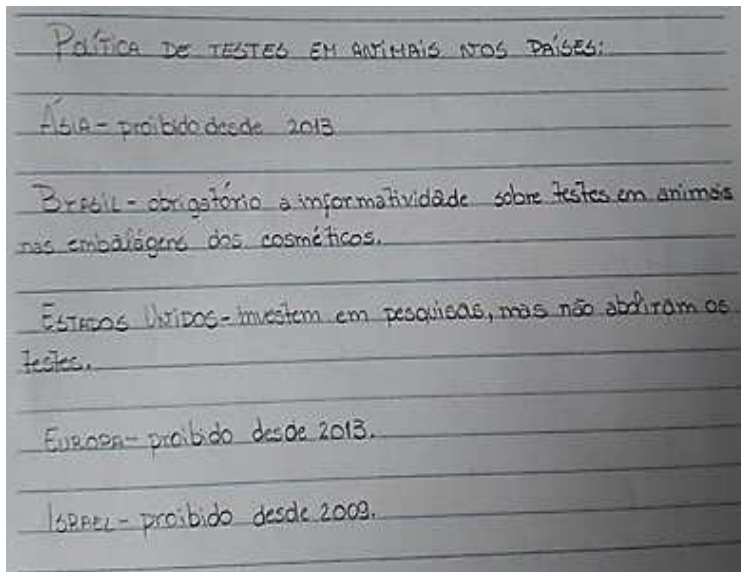 Política de testes em animais nos países:
Ásia - proibido desde 2013
Brasil - obrigatório a informatividade sobre testes em animais
nas embalagens dos cosméticos.
Estados Unidos - investem em pesquisas, mas não aboliram os
testes.
Europa - proibido desde 2013.
Israel - proibido desde 2009.